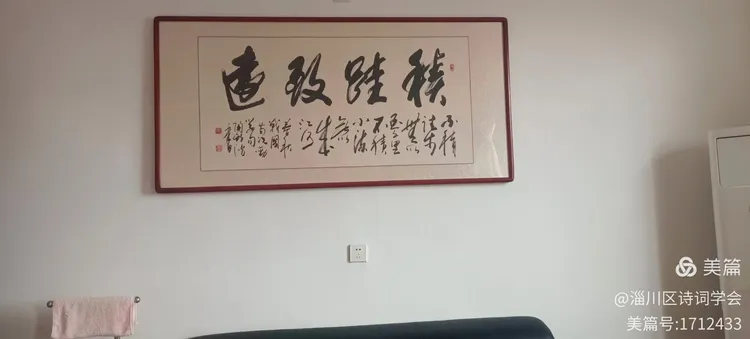 積跬致遠
不積
跬步
無以
至千里
不積
小流
無以
成
江河
春秋
戰國
美篇
@淄川区诗词学会
美篇号:1712433